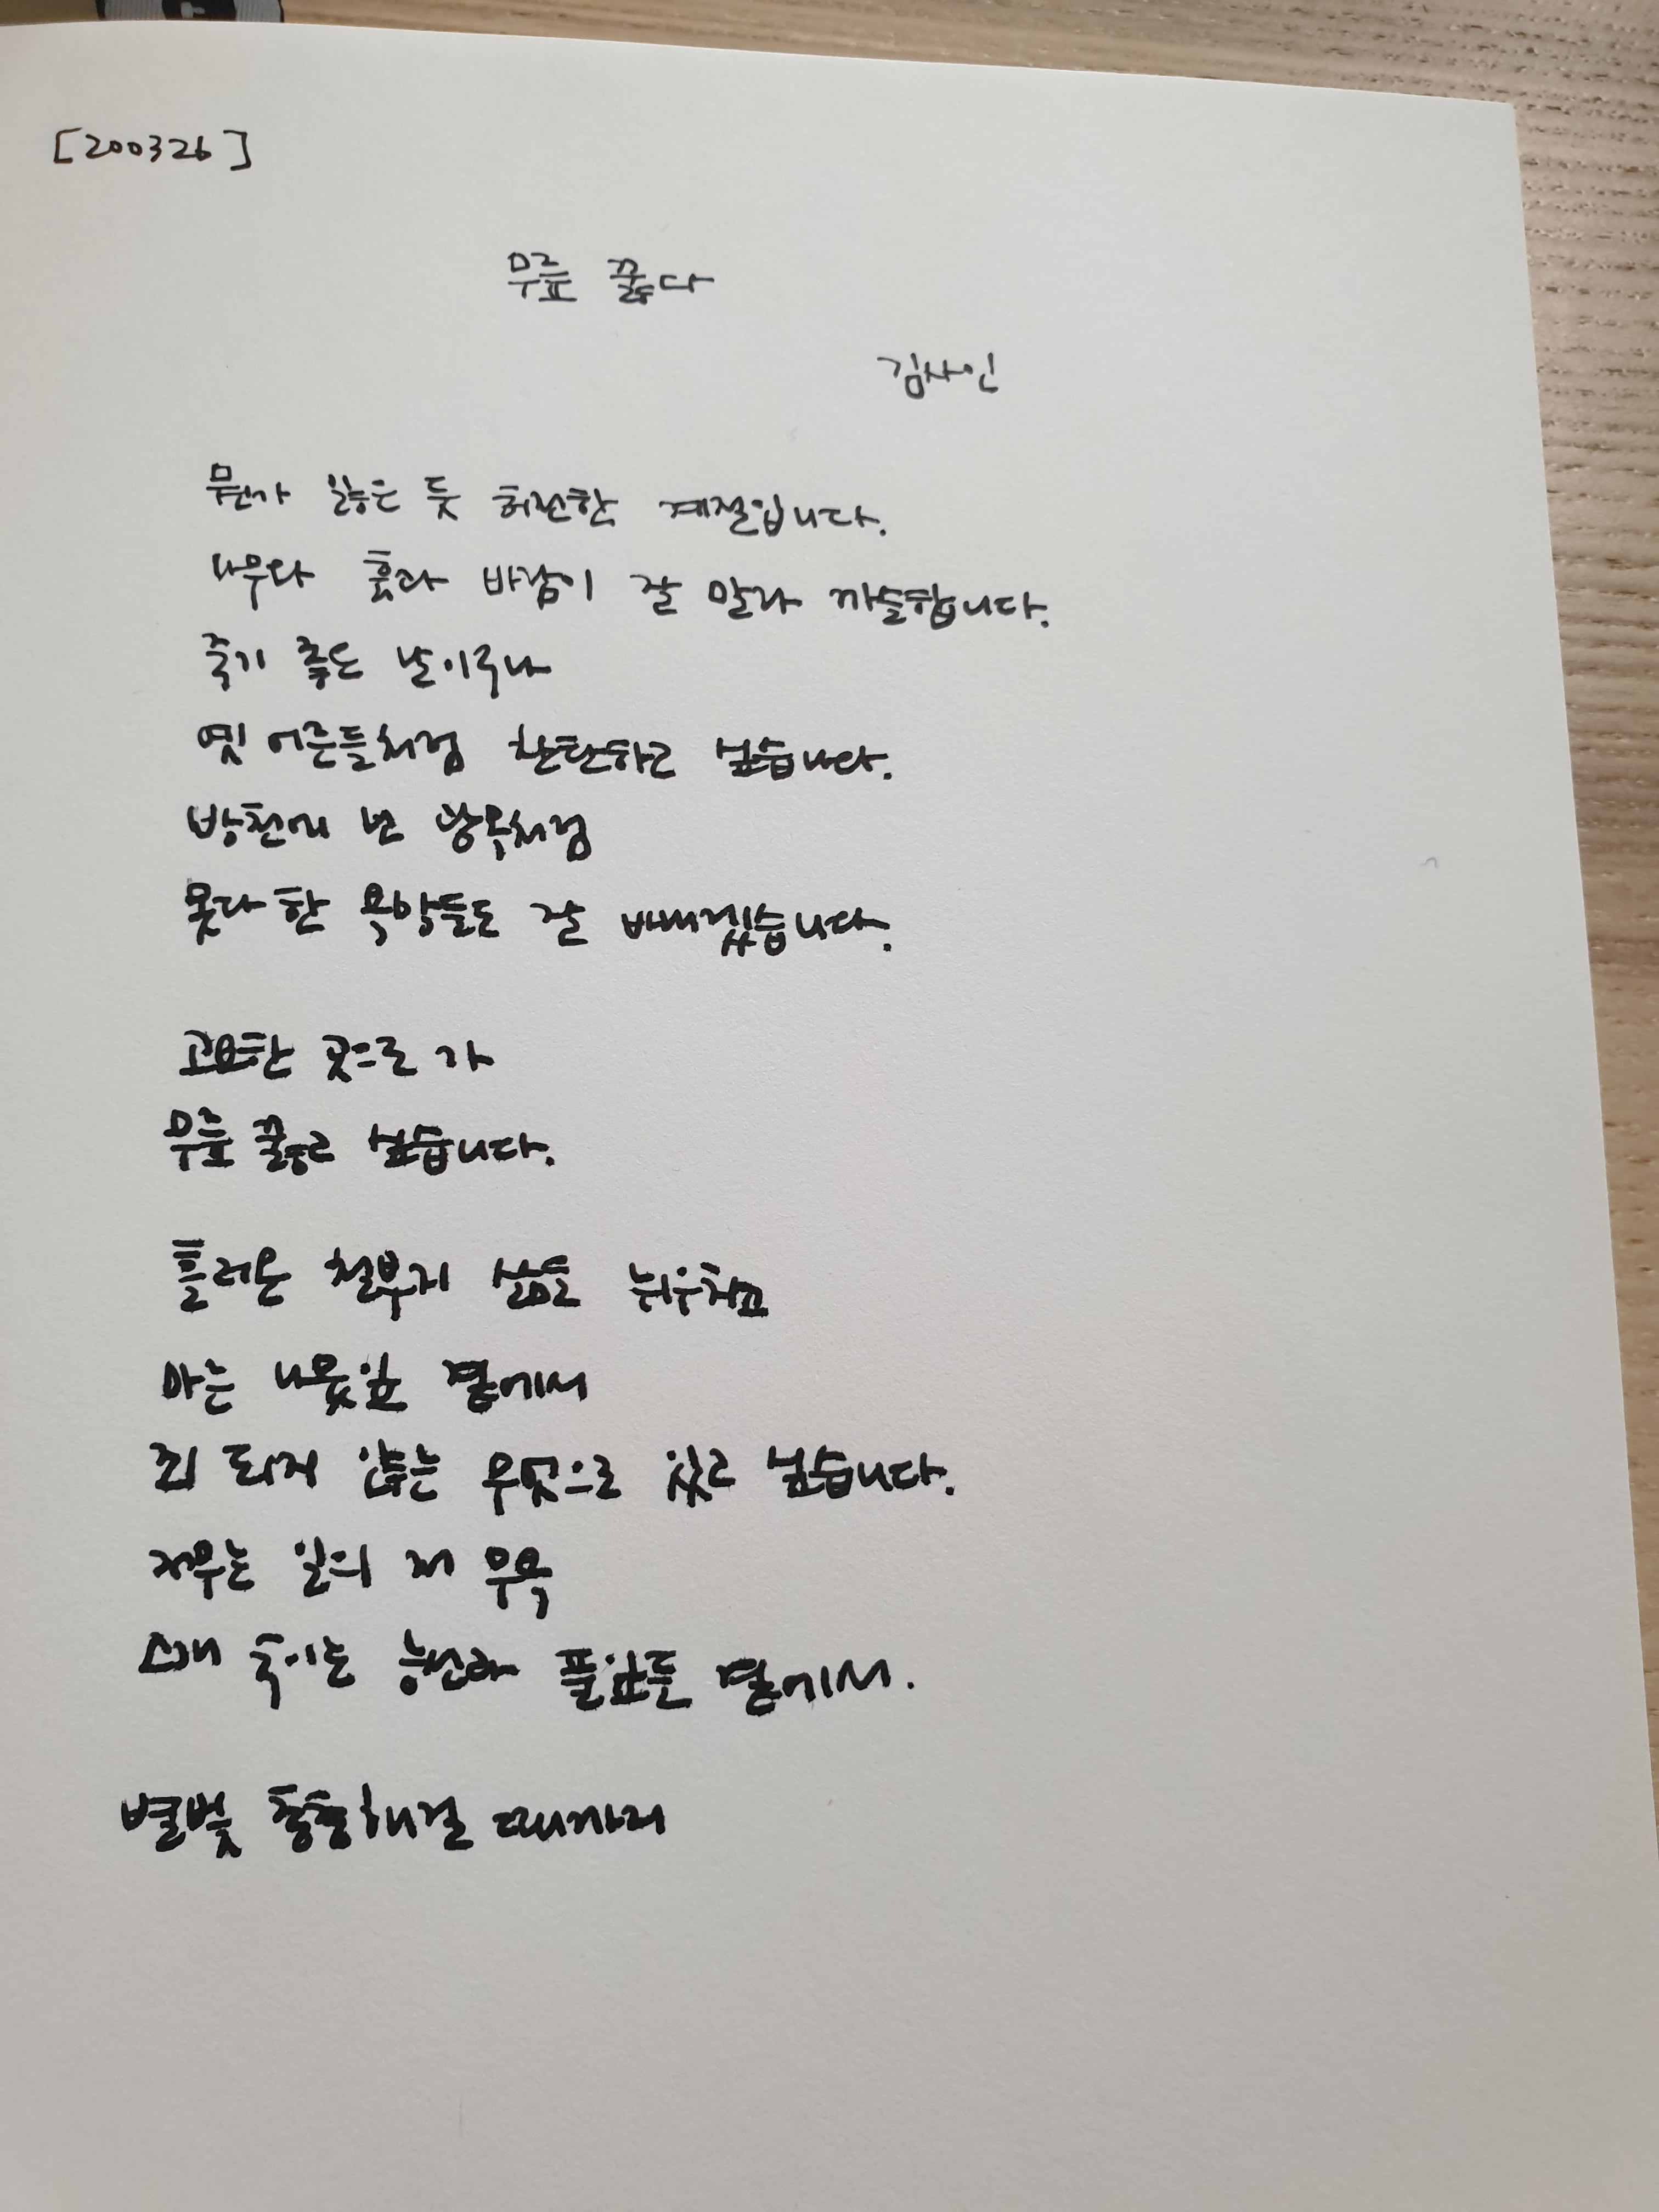 [200326]
무릎 꿇다
김사인
뭔가 잃은 듯 허전한 계절입니다.
나무와 흙과 바람이 잘 말라 까슬합니다.
죽기 좋은 날이구나
옛 어른들처럼 찬탄하고 싶습니다.
방천에 넌 광목처럼
못다 한 욕망들도 잘 바래겠습니다.
고요한 곳으로 가
무릎 꿇고 싶습니다.
흘러온 철부지 삶을 뉘우치고
마른 나뭇잎 곁에서
죄 되지 않는 무엇으로 있고 싶습니다.
저무는 일의 저 무욕
고개 숙이는 능선과 풀잎들 곁에서.
별빛 총총해질 때까지